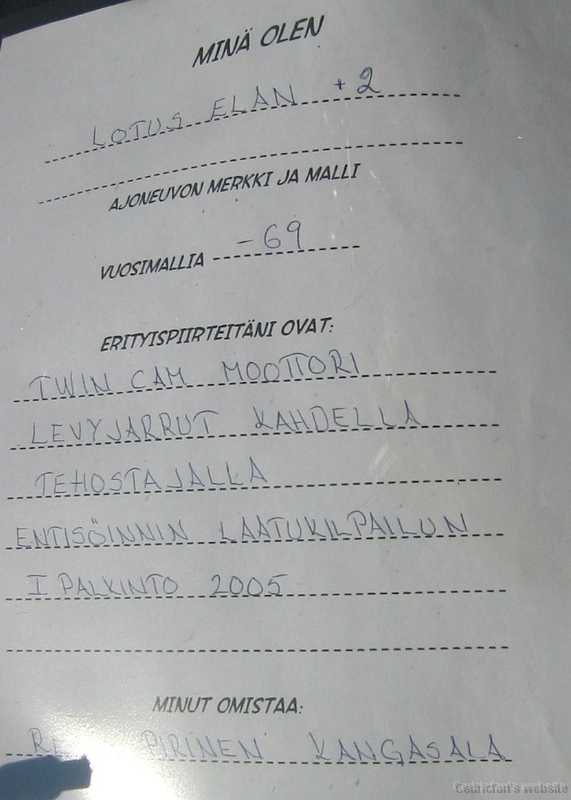 MINÄ OLEN
LOTUS ELAN +2
AJONEUVON MERKKI JA MALLI
VUOSIMALLIA -69
ERITYISPIIRTEITÄNI OVAT:
TWIN CAM MOOTTORI
LEVYJARRUT KAHDELLA
TEHOSTAJALLA
ENTISÖINNIN LAATUKILPAILUN
I PALKINTO 2005
MINUT OMISTAA:
PIRINEN KANGASALA
Cedricfan's website